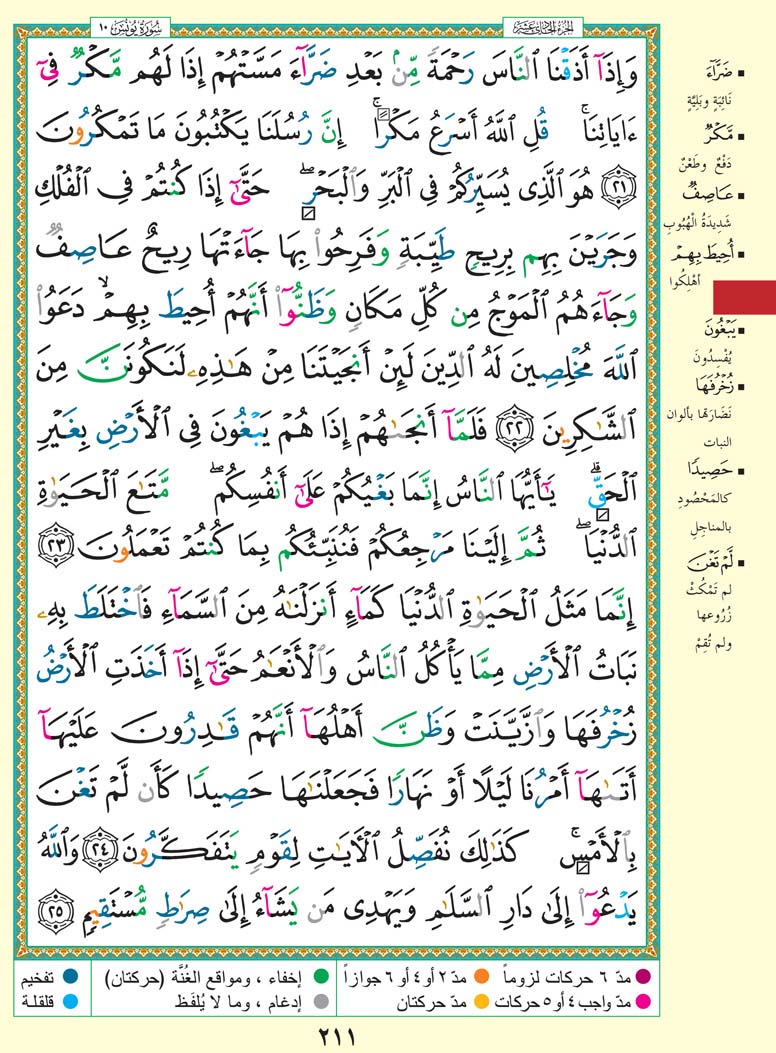 الجزء الحادي عشر
سُورَةُ يُونُسَ ١٠
وَإِذَآ أَذَقْنَا ٱلنَّاسَ رَحْمَةً مِّنۢ بَعْدِ ضَرَّآءَ مَسَّتْهُمْ إِذَا لَهُم مَّكْرٌ فِىٓ
ءَايَاتِنَا ۚ قُلِ ٱللَّهُ أَسْرَعُ مَكْرًا ۚ إِنَّ رُسُلَنَا يَكْتُبُونَ مَا تَمْكُرُونَ
٢١ هُوَ ٱلَّذِى يُسَيِّرُكُمْ فِى ٱلْبَرِّ وَٱلْبَحْرِ ۖ حَتَّىٰٓ إِذَا كُنتُمْ فِى ٱلْفُلْكِ
وَجَرَيْنَ بِهِم بِرِيحٍ طَيِّبَةٍ وَفَرِحُوا۟ بِهَا جَآءَتْهَا رِيحٌ عَاصِفٌ
وَجَآءَهُمُ ٱلْمَوْجُ مِن كُلِّ مَكَانٍ وَظَنُّوٓا۟ أَنَّهُمْ أُحِيطَ بِهِمْ ۙ دَعَوُا۟
ٱللَّهَ مُخْلِصِينَ لَهُ ٱلدِّينَ لَئِنْ أَنجَيْتَنَا مِنْ هَـٰذِهِۦ لَنَكُونَنَّ مِنَ
ٱلشَّـٰكِرِينَ ٢٢ فَلَمَّآ أَنجَىٰهُمْ إِذَا هُمْ يَبْغُونَ فِى ٱلْأَرْضِ بِغَيْرِ
ٱلْحَقِّ ۗ يَـٰٓأَيُّهَا ٱلنَّاسُ إِنَّمَا بَغْيُكُمْ عَلَىٰٓ أَنفُسِكُم ۖ مَّتَـٰعَ ٱلْحَيَوٰةِ
ٱلدُّنْيَا ۖ ثُمَّ إِلَيْنَا مَرْجِعُكُمْ فَنُنَبِّئُكُم بِمَا كُنتُمْ تَعْمَلُونَ ٢٣
إِنَّمَا مَثَلُ ٱلْحَيَوٰةِ ٱلدُّنْيَا كَمَآءٍ أَنزَلْنَـٰهُ مِنَ ٱلسَّمَآءِ فَٱخْتَلَطَ بِهِۦ
نَبَاتُ ٱلْأَرْضِ مِمَّا يَأْكُلُ ٱلنَّاسُ وَٱلْأَنْعَـٰمُ حَتَّىٰٓ إِذَآ أَخَذَتِ ٱلْأَرْضُ
زُخْرُفَهَا وَٱزَّيَّنَتْ وَظَنَّ أَهْلُهَآ أَنَّهُمْ قَـٰدِرُونَ عَلَيْهَآ
أَتَىٰهَآ أَمْرُنَا لَيْلًا أَوْ نَهَارًا فَجَعَلْنَـٰهَا حَصِيدًا كَأَن لَّمْ تَغْنَ
بِٱلْأَمْسِ ۚ كَذَٰلِكَ نُفَصِّلُ ٱلْـَٔايَـٰتِ لِقَوْمٍ يَتَفَكَّرُونَ ٢٤ وَٱللَّهُ
يَدْعُوٓا۟ إِلَىٰ دَارِ ٱلسَّلَـٰمِ وَيَهْدِى مَن يَشَآءُ إِلَىٰ صِرَٰطٍ مُّسْتَقِيمٍ ٢٥
▪ ضَرَّآءَ
نَائِبَةٍ وبَلِيَّةٍ
▪ مَّكْرٌ
دَفْعٌ وطَعْنٌ
▪ عَاصِفٌ
شَدِيدَةُ الْهُبُوبِ
▪ أُحِيطَ بِهِمْ
أُهْلِكُوا
▪ يَبْغُونَ
يُفْسِدُونَ
▪ زُخْرُفَهَا
نَضَارَتَها بألوان
النبات
▪ حَصِيدًا
كالمَحْصُودِ
بالمناجِلِ
▪ لَّمْ تَغْنَ
لم تَمْكُثْ
زُرُوعها
ولم تُقِمْ
مدّ ٦ حركات لزوماً
مدّ واجب ٤ أو ٥ حركات
مدّ ٢ أو ٤ أو ٦ جوازاً
مدّ حركتان
إخفاء ، ومواقع الغُنَّة (حركتان)
إدغام ، وما لا يُلفَظ
تفخيم
قلقلة
٢١١